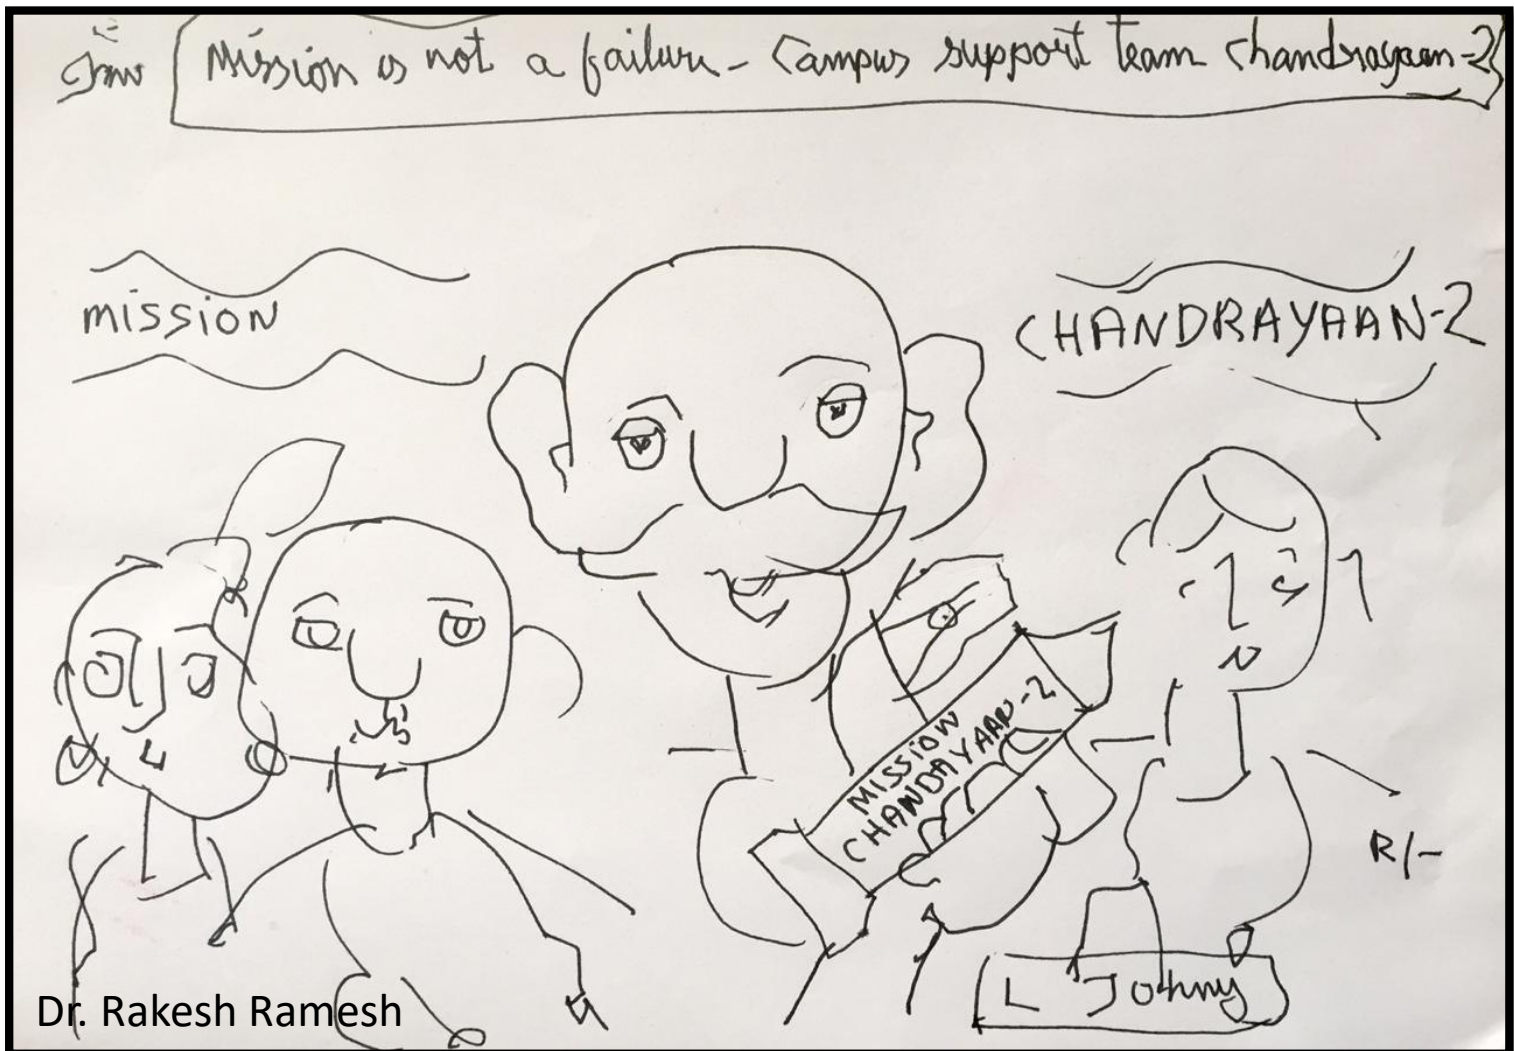 Mission is not a failure - Campus support team Chandrayaan-2
MISSION
CHANDRAYAAN-2
MISSION
CHANDAYAAN-2
R/-
L Johny
Dr. Rakesh Ramesh